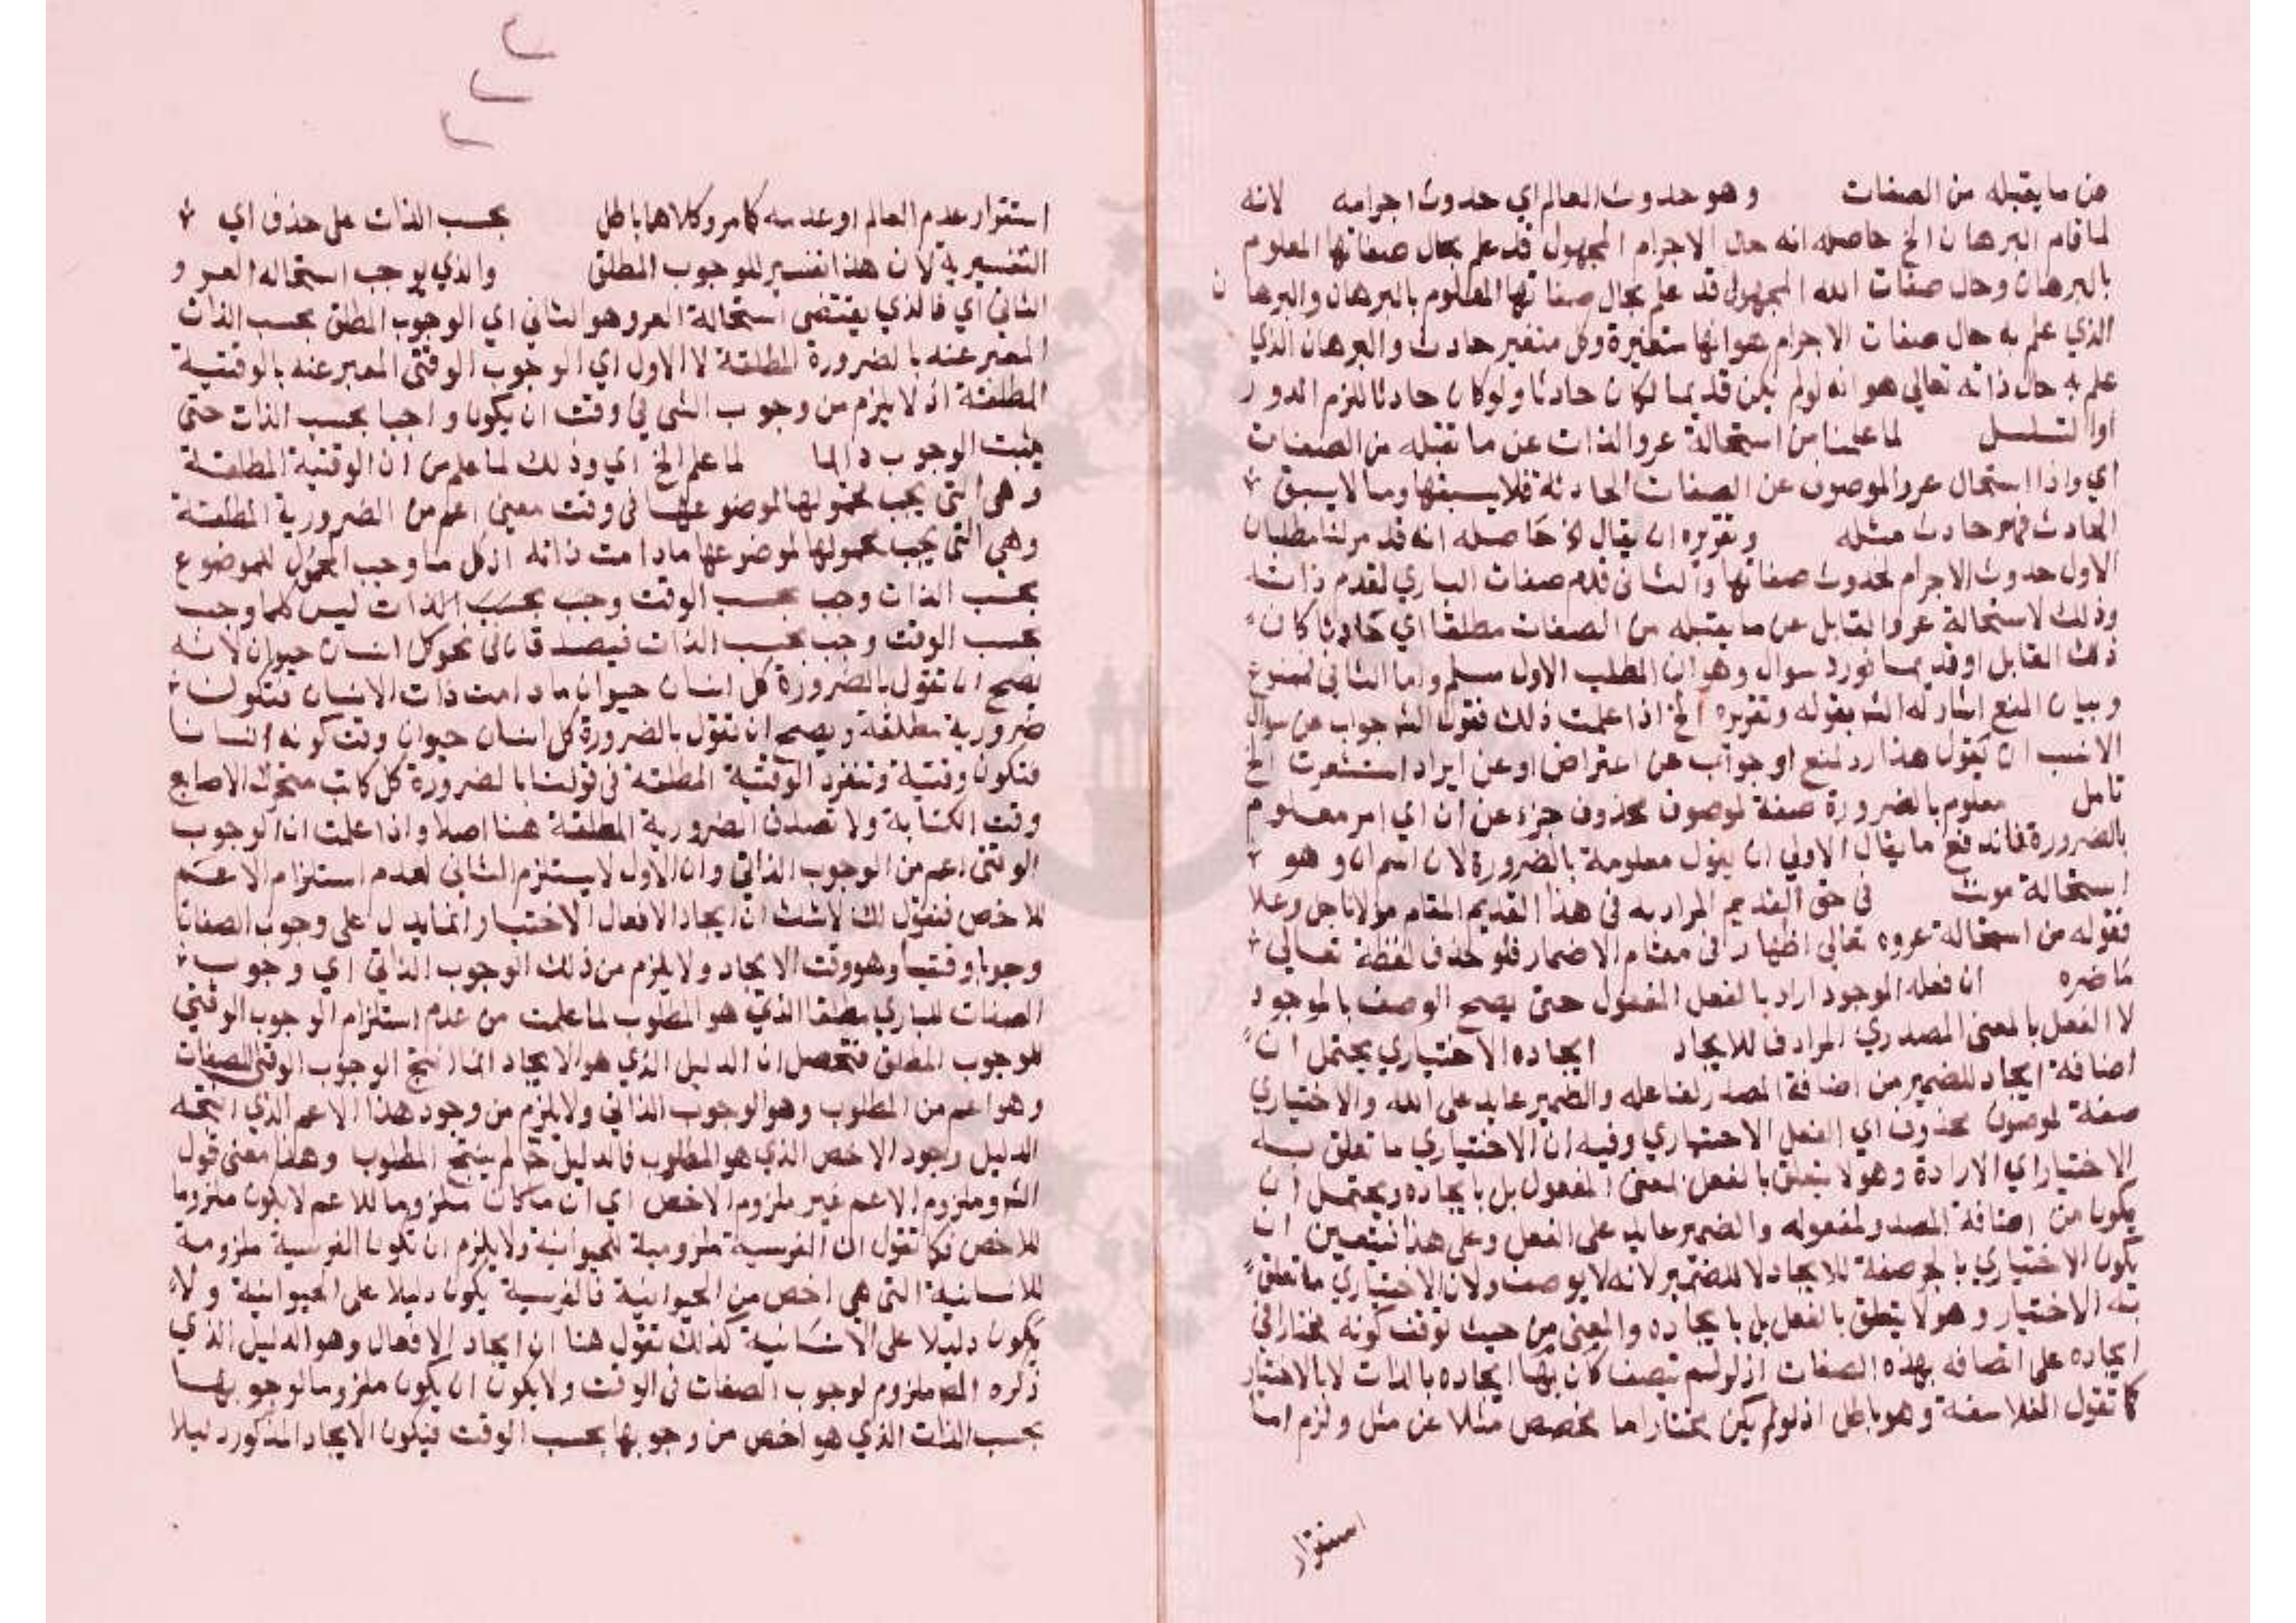 عن ما يقبله من الصفات وهو حدوث العالم اي حدوث اجرامه لانه
لما قام البرهان الخ حاصله انه حال الاجرام المجهول قد علم بحال صفاتها المعلوم
بالبرهان وحال صفات الله المجهول قد علم بحال صفاتها المعلوم بالبرهان والبرهان
الذي علم به حال صفات الاجرام هو انها متغيرة وكل متغير حادث والبرهان الذي
علم به حال ذاته تعالى هو انه لو لم يكن قديما لكان حادثا ولو كان حادثا للزم الدور
او التسلسل لما علمنا من استحالة عرو الذات عن ما تقبله من الصفات
اي واذا استحال عرو الموصوف عن الصفات الحادثة فلا يسبقها وما لا يسبق
الحادث فهو حادث مثله وتقريره ان يقال الخ حاصله انه قد مر لنا مطلبان
الاول حدوث الاجرام لحدوث صفاتها والثاني قدم صفات الباري لقدم ذاته
وذلك لاستحالة عرو القابل عن ما يقبله من الصفات مطلقا اي حادثا كان
ذلك القابل او قديما فورد سوال وهو ان المطلب الاول مسلم واما الثاني لممنوع
وبيان المنع اشار له الش بقوله وتقريره الخ اذا علمت ذلك فقول الش جواب عن سوال
الانسب ان يقول هذا رد لمنع او جواب عن اعتراض او عن ايراد استشعرت الخ
تامل معلوم بالضرورة صفة لموصوف محذوف جزء عن ان اي امر معلوم
بالضرورة فاندفع ما يقال الاولى ان يقول معلومة بالضرورة لان اسم ان وهو
استحالة مونث في حق القديم المراد به في هذا القديم المقام مولانا جل وعلا
فقوله من استحالة عروه تعالى اظهار في مقام الاضمار فلو حذف لفظة تعالى
ما ضره ان فعله الموجود اراد بالفعل المفعول حتى يصح الوصف بالموجود
لا الفعل بالمعنى المصدري المرادف للايجاد ايجاده الاختياري يحتمل ان
اضافة ايجاد للضمير من اضافة المصدر لفاعله والضمير عايد على الله والاختياري
صفة لموصوف محذوف اي الفعل الاختياري وفيه ان الاختياري ما تعلق به
الاختيار اي الارادة وهو لا يتعلق بالفعل لمعنى المفعول بل بايجاده ويحتمل ان
يكون من اضافة المصدر لمفعوله والضمير عايد على الفعل وعلى هذا فيتعين ان
يكون الاختياري بالجر صفة للايجاد لا للضمير لانه لا يوصف ولان الاختياري ما تعلق
به الاختيار وهو لا يتعلق بالفعل بل بايجاده والمعنى من حيث توقف كونه مختارا في
ايجاده على اتصافه بهذه الصفات اذ لو لم يتصف كان بها ايجاده بالذات لا بالاختيار
كما تقول الفلاسفة وهو باطل اذ لو لم يكن مختارا ما خصص مثلا عن مثل ولزم اما
استقرار
استقرار عدم العالم او عدمه كما مر وكلاهما باطل بحسب الذات على حذف اي
التفسيرية لان هذا تفسير للوجوب المطلق والذي يوجب استحالة العرو
الثاني اي فالذي يقتضي استحالة العرو هو الثاني اي الوجوب المطلق بحسب الذات
المعبر عنه بالضرورة المطلقة لا الاول اي الوجوب الوقتي المعبر عنه بالوقتية
المطلقة اذ لا يلزم من وجوب الشي في وقت ان يكون واجبا بحسب الذات حتى
يثبت الوجوب دايما لما علم الخ اي وذلك لما علم من ان الوقتية المطلقة
وهي التي يجب محمولها لموضوعها في وقت معين اعم من الضرورية المطلقة
وهي التي يجب محمولها لموضوعها ما دامت ذاته اذ كل ما وجب المحمول للموضوع
بحسب الذات وجب بحسب الوقت وجب بحسب الذات ليس كلما وجب
بحسب الوقت وجب بحسب الذات فيصدقان في نحو كل انسان حيوان لانه
يصح ان تقول بالضرورة كل انسان حيوان ما دامت ذات الانسان فتكون
ضرورية مطلقة ويصح ان تقول بالضرورة كل انسان حيوان وقت كونه انسانا
فتكون وقتية وتنفرد الوقتية المطلقة في قولنا بالضرورة كل كاتب متحرك الاصابع
وقت الكتابة ولا تصدق الضرورية المطلقة هنا اصلا واذا علمت ان الوجوب
الوقتي اعم من الوجوب الذاتي وان الاول لا يستلزم الثاني لعدم استلزام الاعم
للاخص فنقول لك لا شك ان ايجاد الافعال الاختيار انما يدل على وجوب الصفات
وجوبا وقتيا وهو وقت الايجاد ولا يلزم من ذلك الوجوب الذاتي اي وجوب
الصفات للباري مطلقا الذي هو المطلوب لما علمت من عدم استلزام الوجوب الوقتي
للوجوب المطلق فتحصل ان الدليل الذي هو الايجاد انما انتج الوجوب الوقتي للصفات
وهو اعم من المطلوب وهو الوجوب الذاتي ولا يلزم من وجود هذا الاعم الذي انتجه
الدليل وجود الاخص الذي هو المطلوب فالدليل ح لم ينتج المطلوب وهذا معنى قول
الش وملزوم الاعم غير ملزوم الاخص اي ان ما كان ملزوما للاعم لا يكون ملزوما
للاخص فكما تقول ان الفرسية ملزومية للحيوانية ولا يلزم ان تكون الفرسية ملزومية
للانسانية التي هي اخص من الحيوانية فالفرسية يكون دليلا على الحيوانية ولا
يكون دليلا على الانسانية كذلك نقول هنا ان ايجاد الافعال وهو الدليل الذي
ذكره المص ملزوم لوجوب الصفات في الوقت ولا يكون ان يكون ملزوما لوجوبها
بحسب الذات الذي هو اخص من وجوبها بحسب الوقت فيكون الايجاد المذكور دليلا